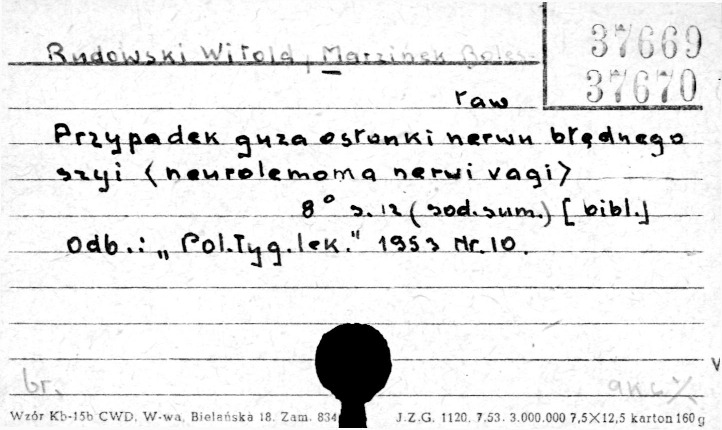 37669
37670
Rudowski Witold, Marzinek Boles-
ław
Przypadek guza osłonki nerwu błędnego
szyi (neurolemoma nervi vagi)
8° s. 12 (sod. sum.) [bibl.]
Odb.: „Pol. Tyg. lek." 1953 Nr. 10.
br.
Wzór Kb-15b CWD, W-wa, Bielańska 18. Zam. 834
J.Z.G. 1120. 7.53. 3.000.000 7,5×12,5 karton 160 g